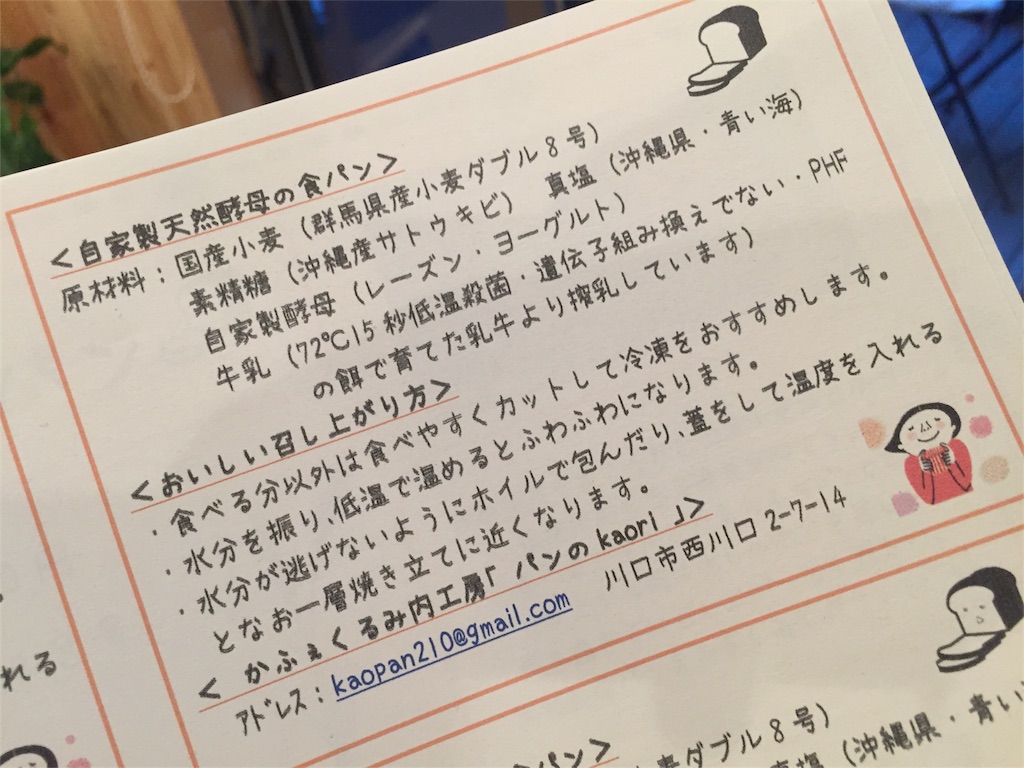 <自家製天然酵母の食パン>
原材料：国産小麦（群馬県産小麦ダブル8号）
素精糖（沖縄産サトウキビ） 真塩（沖縄県・青い海）
自家製酵母（レーズン・ヨーグルト）
牛乳（72℃15秒低温殺菌・遺伝子組み換えでない・PHF
の餌で育てた乳牛より搾乳しています）
<おいしい召し上がり方>
・食べる分以外は食べやすくカットして冷凍をおすすめします。
・水分を振り、低温で温めるとふわふわになります。
・水分が逃げないようにホイルで包んだり、蓋をして温度を入れる
となお一層焼き立てに近くなります。
< かふぇくるみ内工房「パンのkaori」>
川口市西川口 2-7-14
アドレス：kaopan210@gmail.com
れる
パン>
小麦ダブル8号）
真塩（沖縄県・青い